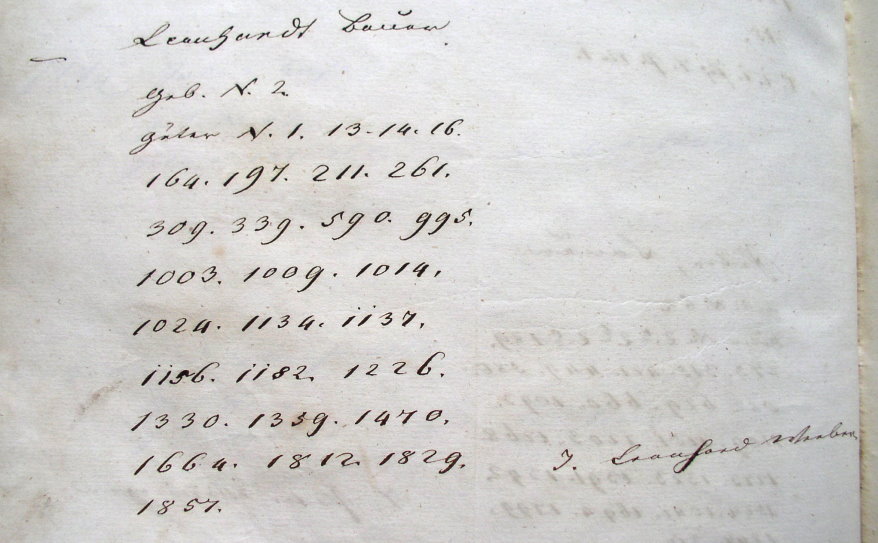 Leonhardt Bauer.
Geb. N. 2.
Güter N. 1. 13. 14. 16.
164. 197. 211. 261.
309. 339. 590. 995.
1003. 1009. 1014.
1024. 1134. 1137.
1156. 1182. 1226.
1330. 1359. 1470.
1664. 1812. 1829.
1857.
J. Leonhard